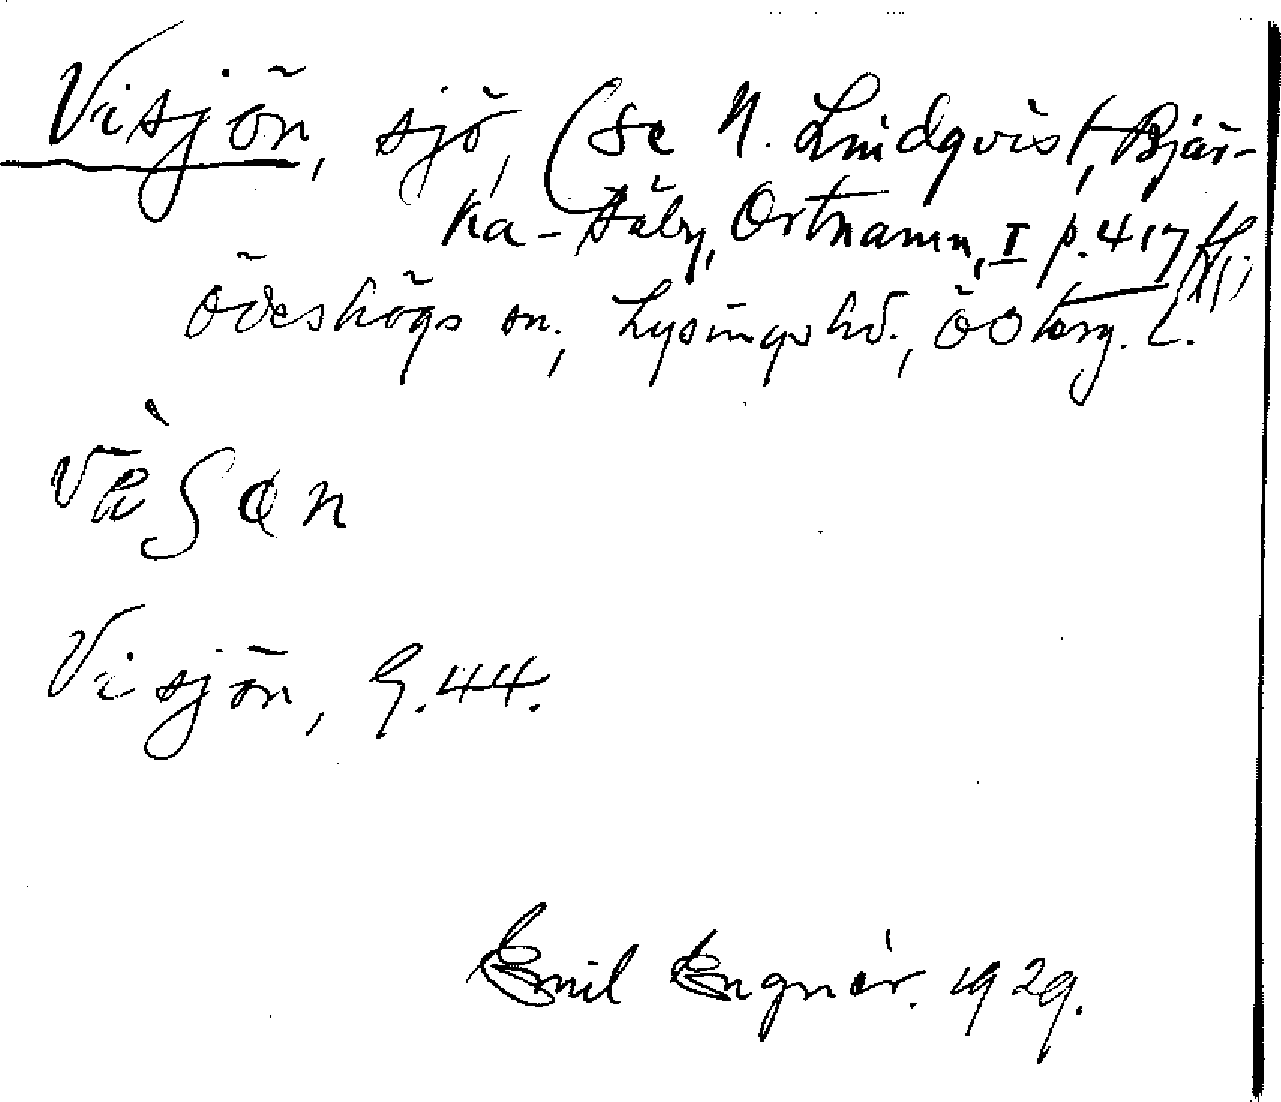 Visjön, sjö, (se N. Lindqvist, Bjär-
ka-Säby, Ortnamn, I p. 417 ff);
Ödeshögs sn., Lysings hd., Österg. L.
Visjön, G. 44.
Emil Engnér. 1929.